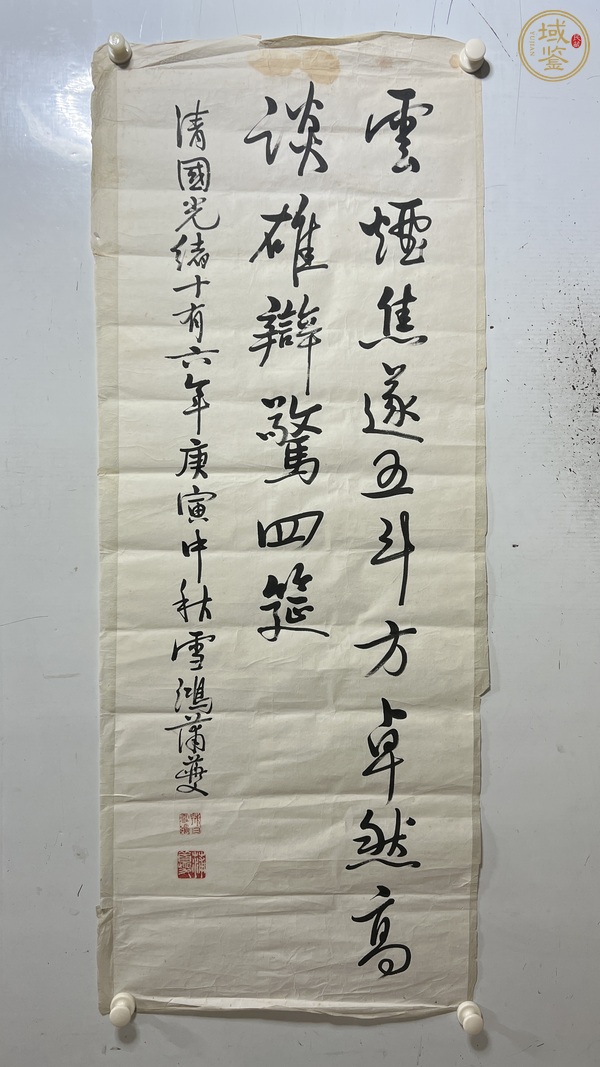 雲煙焦遂五斗方卓然高
談雄辯驚四筵
清國光緒十有六年庚寅中秋雪鴻蒲華
域鑒
YUJIAN